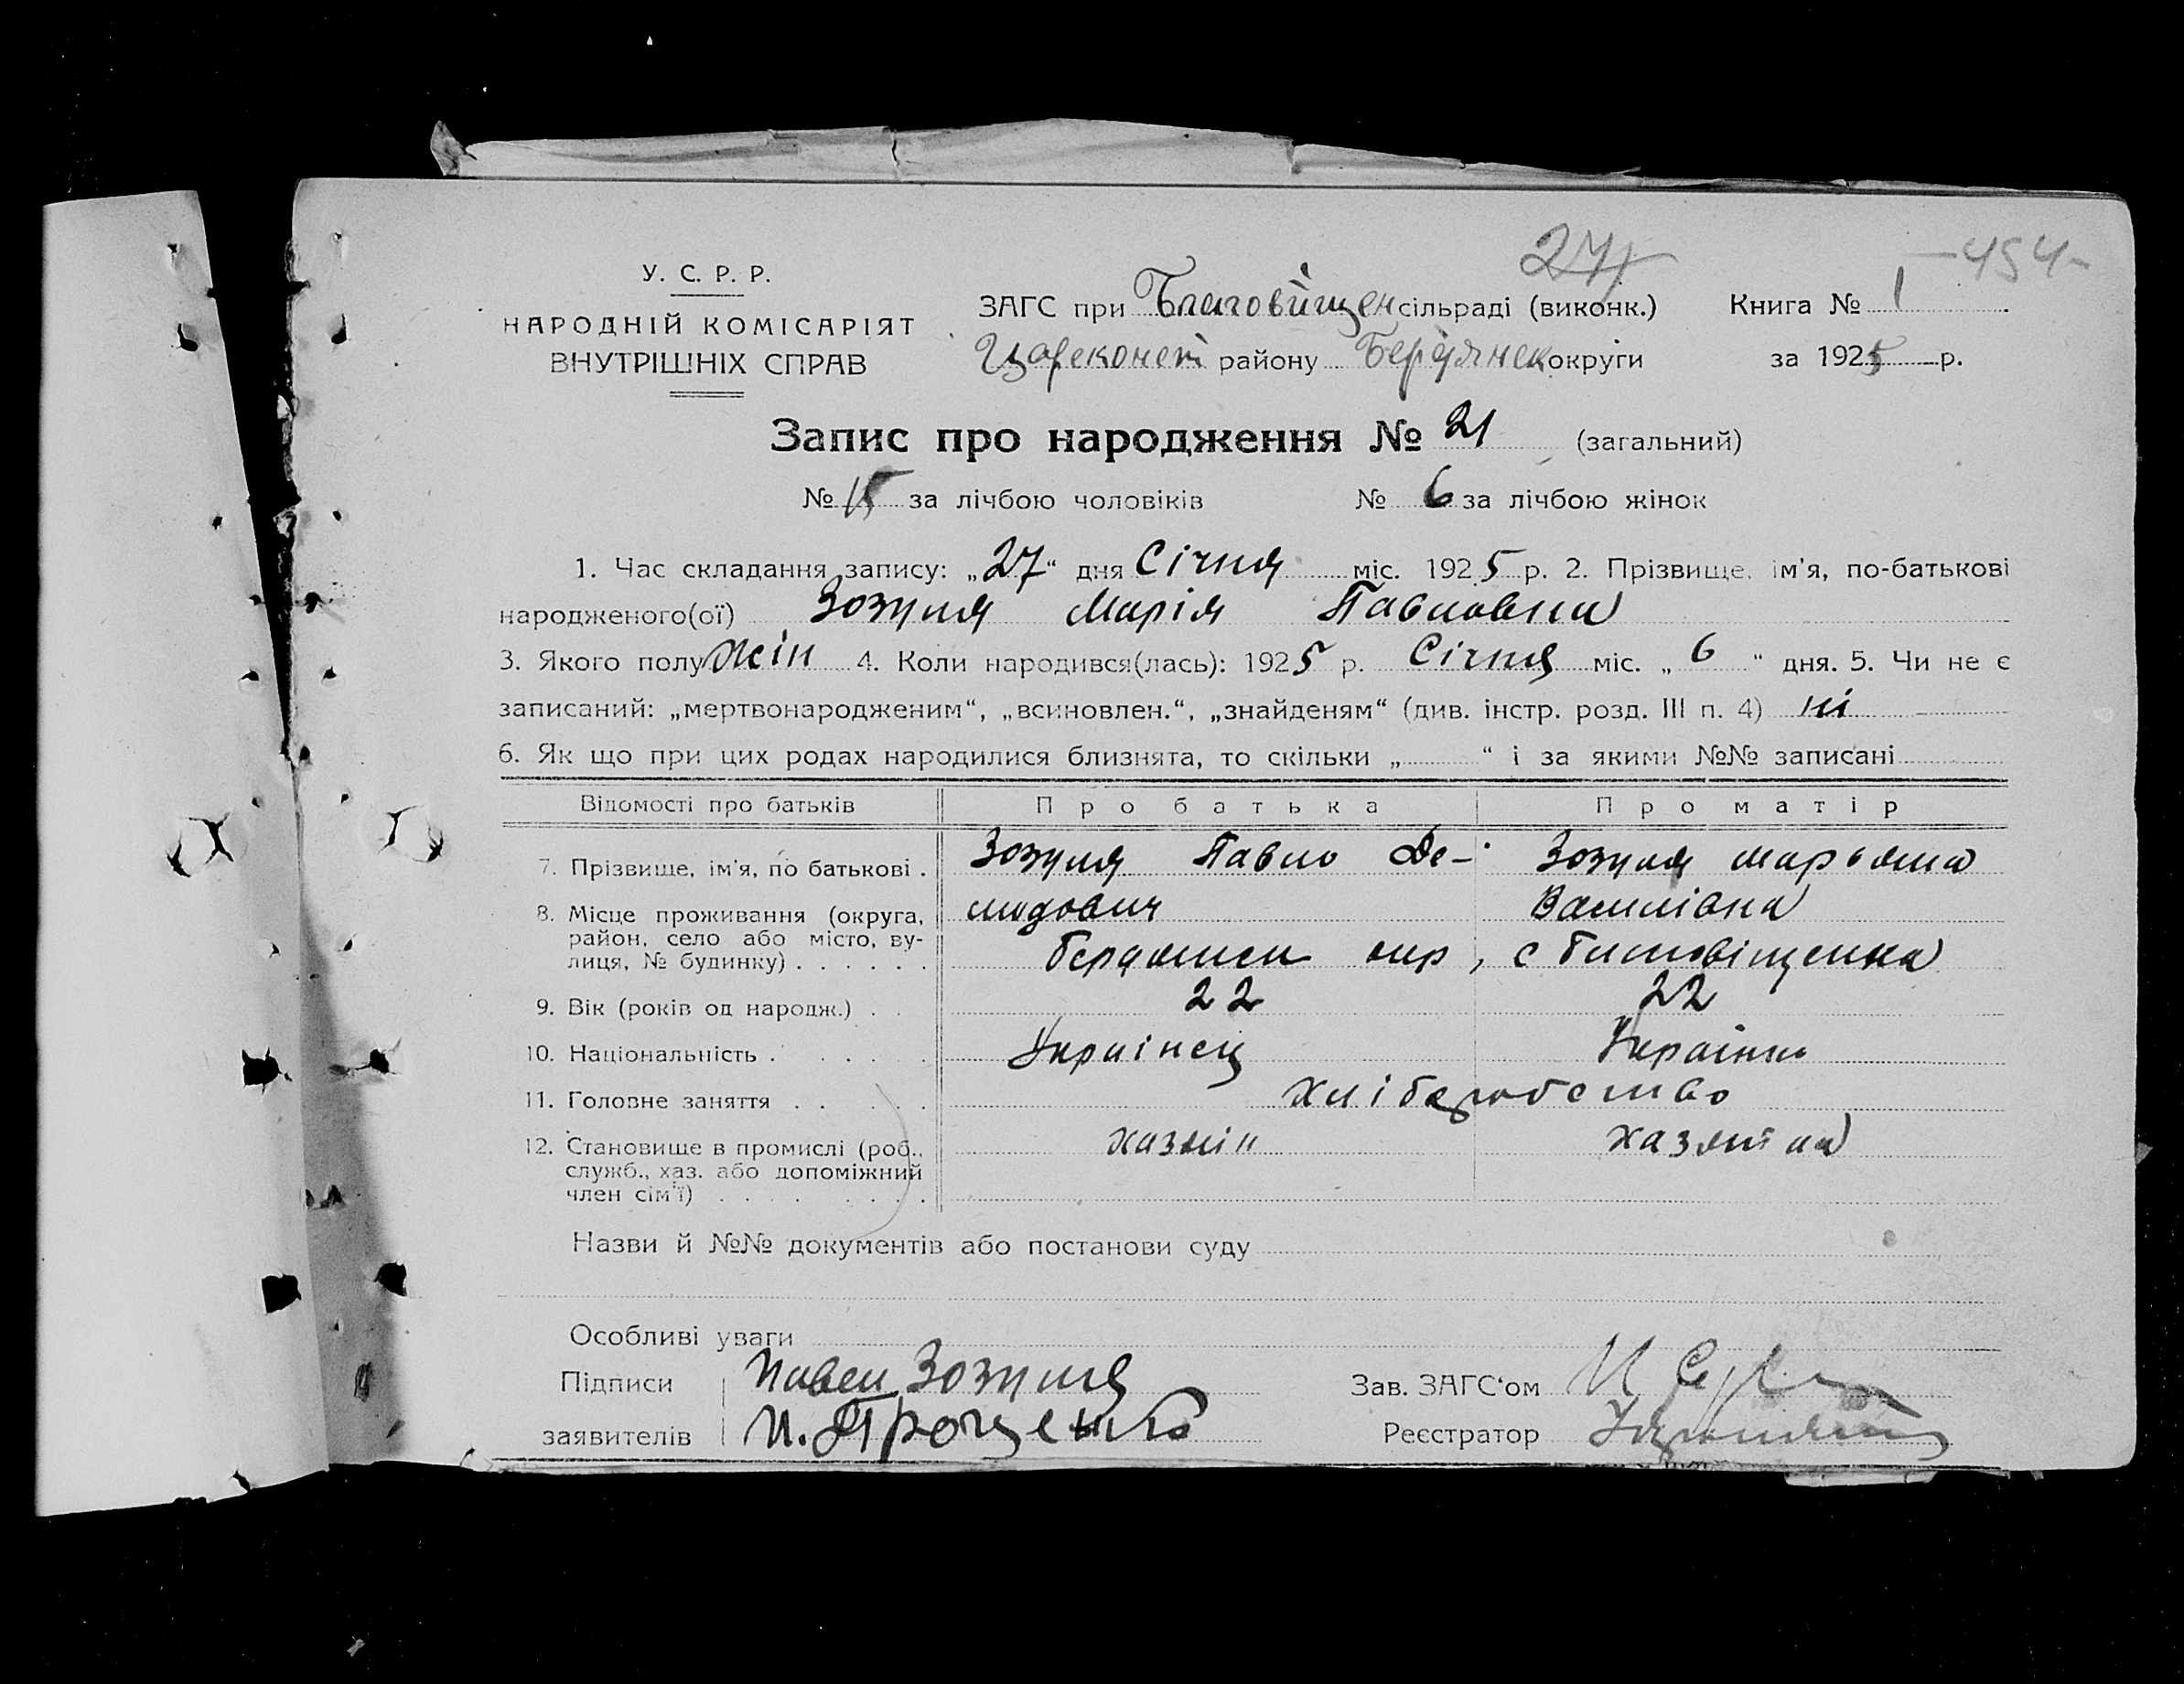 274
-454-
У. С. Р. Р.
НАРОДНІЙ КОМІСАРІЯТ
ВНУТРІШНІХ СПРАВ
ЗАГС при Благовіщен сільраді (виконк.) Книга № 1
Цареконст району Бердянськ округи за 1925 р.
Запис про народження № 21 (загальний)
№ 15 за лічбою чоловіків № 6 за лічбою жінок
1. Час складання запису: „27“ дня Січня міс. 1925 р. 2. Прізвище, ім'я, по-батькові
народженого(ої) Зозуля Марія Павловна
3. Якого полу жін 4. Коли народився(лась): 1925 р. Січня міс. „ 6 “ дня. 5. Чи не є
записаний: „мертвонародженим“, „всиновлен.“, „знайденям“ (див. інстр. розд. III п. 4) ні
6. Як що при цих родах народилися близнята, то скільки „ “ і за якими №№ записані
Відомості про батьків Про батька Про матір
7. Прізвище, ім'я, по батькові . Зозуля Павло Де- Зозуля Марьяна
мидович Василівна
8. Місце проживання (округа,
район, село або місто, ву-
лиця, № будинку) . . . . . . Бердянськ окр, с Благовіщенка
9. Вік (років од народж.) . . 22 22
10. Національність . . . . . Українец Українка
11. Головне заняття . . . . . Хліборобство
12. Становище в промислі (роб.,
служб., хаз. або допоміжний
член сім'ї) . . . . . . . . хазяін хазяйка
Назви й №№ документів або постанови суду
Особливі уваги
Підписи Павел Зозуля Зав. ЗАГС‘ом
заявителів И. Трощенко Реєстратор